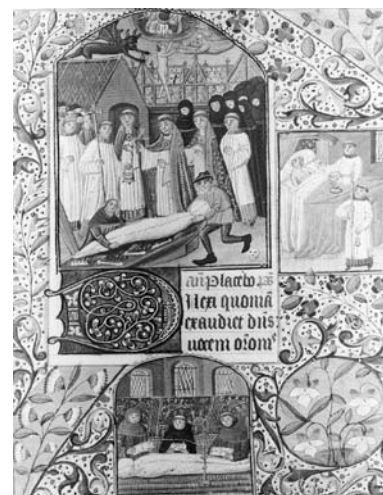 añ Placebo p̃s
Dilexi quoniã
exaudiet dñs
uocem or̃om̃